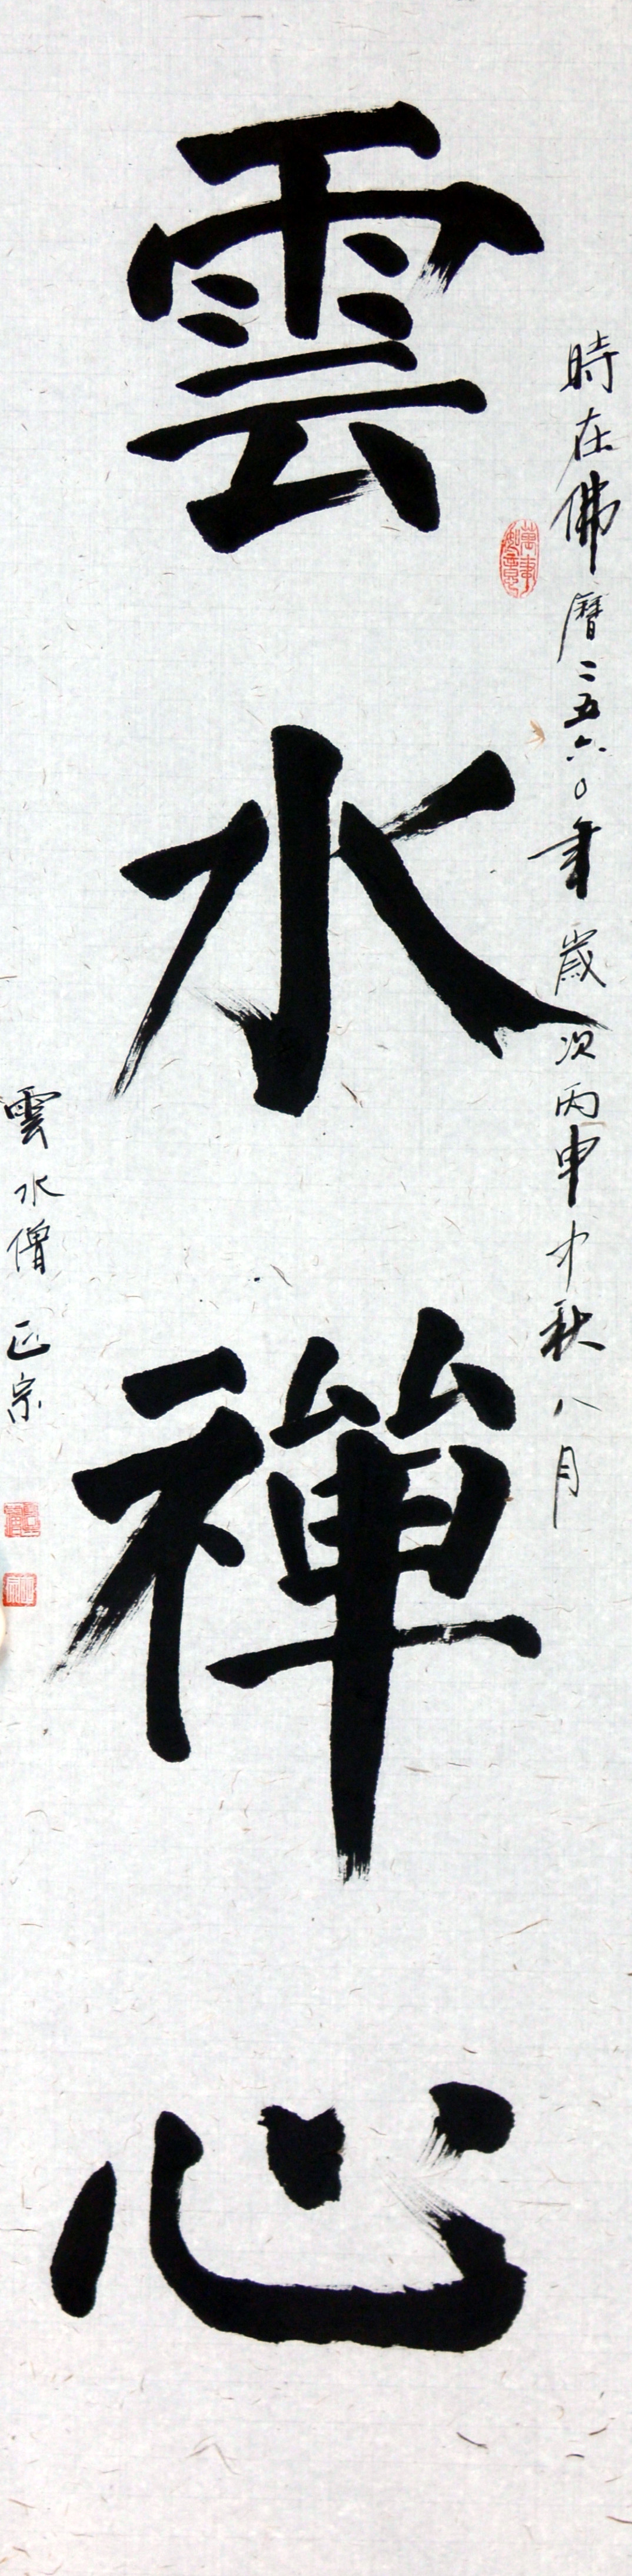 時在佛曆二五六〇年歲次丙申中秋八月
雲水禪心
雲水僧正宗
萬事如意